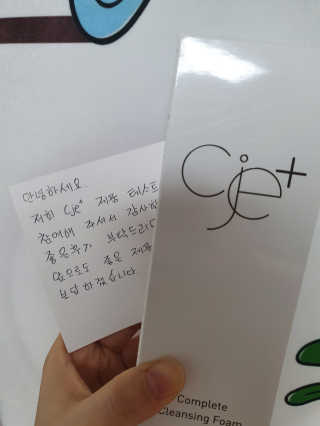 안녕하세요.
저희 Cje+ 제품 테스트
참여해 주셔서 감사합
좋은후기 부탁드리며
앞으로도 좋은 제품
보답 하겠습니다
Cje+
Complete
Cleansing Foam